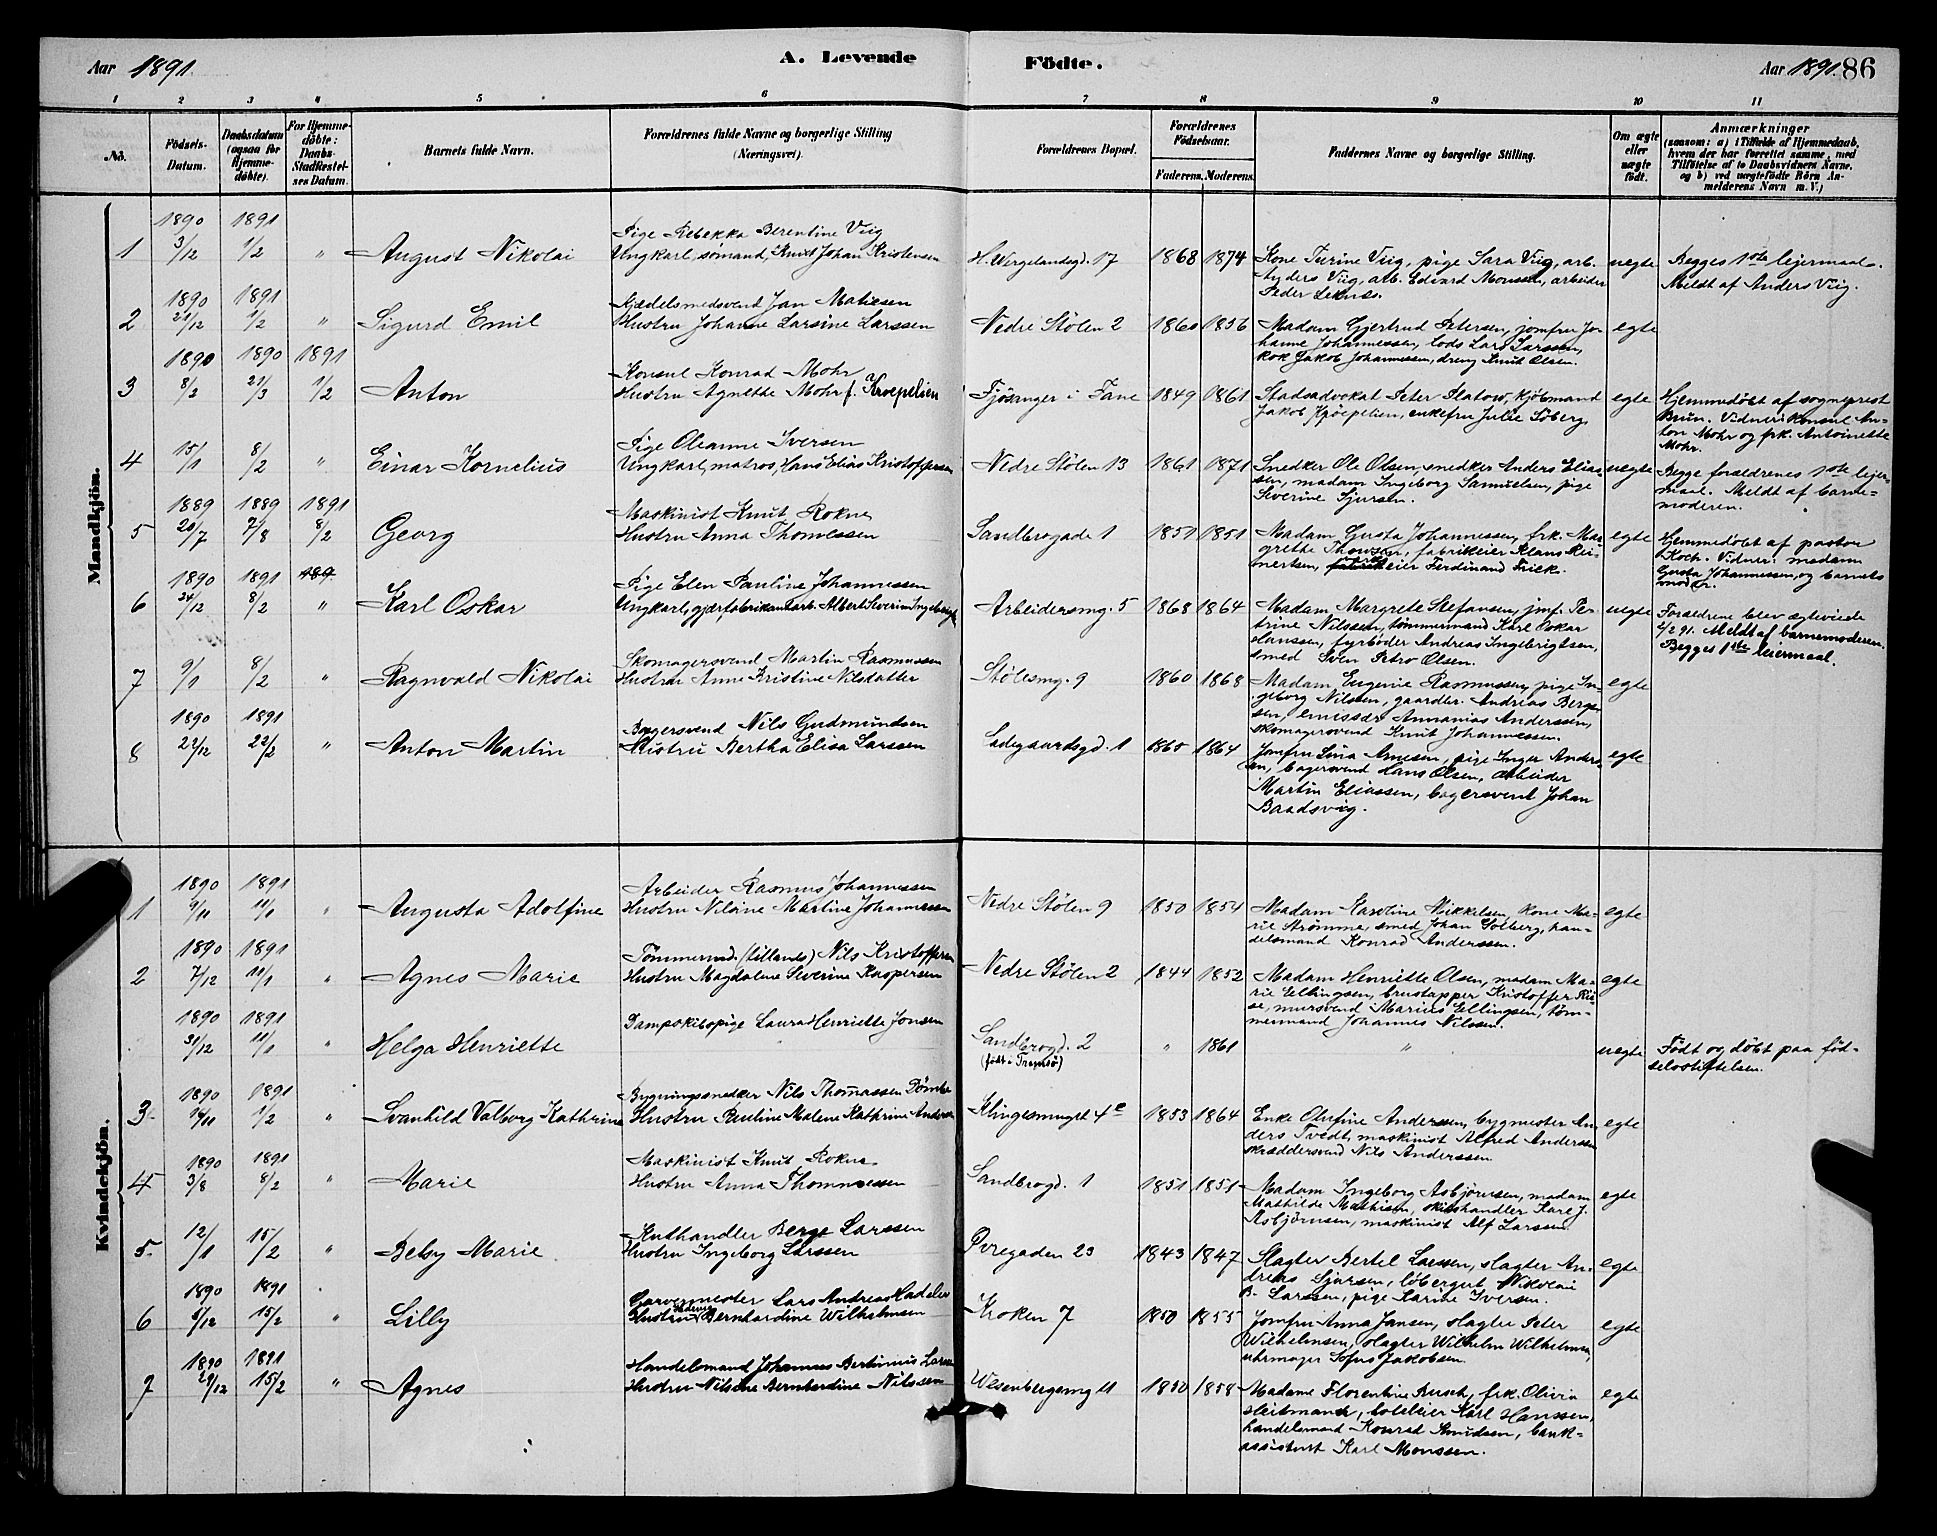 Aar 1891.
A. Levende Födte.
Aar 1891. 86
1 2 3 4 5 6 7 8 9 10 11
No.
Födsels-Datum.
Daabsdatum (ogsaa for Hjemme-döbte).
For Hjemme-döbte: Daabs-Stadfæstel-ses Datum.
Barnets fulde Navn.
Forældrenes fulde Navne og borgerlige Stilling (Næringsvei).
Forældrenes Bopæl.
Forældrenes Födselsaar.
Faderens. Moderens.
Faddernes Navne og borgerlige Stilling.
Om ægte eller uægte födt.
Anmærkninger
(saasom: a) i Tilfælde af Hjemmedaab, hvem der har forrettet samme, med Tilföielse af to Daabsvidners Navne, og b) ved uægtefödte Börn An-melderens Navn m. V.)
Mandkjön.
1 1890 3/12 1891 1/2 " August Nikolai
Pige Rebekka Berentine Viig
Ungkarl, sömand, Knut Johan Kristensen
H. Wergelandsgd. 17 1868 1874
Kone Turine Viig, pige Sara Viig, arb.
Anders Viig, arb. Edvard Monssen, arbeider
Peder Leknes.
uegte
Begges 1ste lejermaal.
Meldt af Anders Viig.
2 1890 21/12 1891 1/2 " Sigurd Emil
Kjedelsmedsvend Jan Matiesen
Hustru Johanne Larsine Larssen
Nedre Stölen 2 1860 1856
Madam Gjertrud Petersen, jomfru Jo-
hanne Johannessen, lods Lars Larssen,
kok Jakob Johannessen, dreng Knut Olsen.
egte
3 1890 8/2 1890 21/3 1891 1/2 Anton
Konsul Konrad Mohr
Hustru Agnethe Mohr f. Kroepelien
Fjösanger i Fane 1849 1861
Stadsadvokat Peter Platow, kjöbmand
Jakob Kroepelien, enkefru Julie Söberg.
egte
Hjemmedöbt af sogneprest
Brun. Vidner: Konsul An-
ton Mohr og frk. Antoinette
Mohr.
4 15/1 8/2 " Einar Kornelius
Pige Oleanne Iversen
Ungkarl, matros, Hans Elias Kristoffersen
Nedre Stölen 13 1861 1871
Snedker Ole Olsen, snedker Anders Elias-
sen, madam Ingeborg Samuelsen, pige
Severine Sjursen.
uegte
Begge forældrenes 1ste lejer-
maal. Meldt af barne-
moderen.
5 1889 20/7 1889 7/8 1891 8/2 Georg
Maskinist Knut Rokne
Hustru Anna Thomessen
Sandbrogade 1 1851 1851
Madam Gusta Johannessen, frk. Mar-
grethe Thowsen, fabrikeier Klaus Rei-
mertsen, Ferdinand Frick.
egte
Hjemmedöbt af pastor
Koch. Vidner: madam
Gusta Johannessen, og barnets
moder.
6 1890 24/12 1891 8/2 189 " Karl Oskar
Pige Elen Pauline Johannessen
Ungkarl, gjærfabrikantarb. Albert Severin Ingebrigtsen
Arbeidersmg. 5 1868 1864
Madam Margrete Stefansen, jmf. Pe-
trine Nilssen, tömmermand Karl Oskar
Hanssen, fyrböder Andreas Ingebrigtsen,
smed Sven Petro Olsen.
uegte
Foraeldrene blev egteviede
2/2 91. Meldt af barnemoderen.
Begges 1ste leiermaal.
7 9/1 8/2 " Ragnvald Nikolai
Skomagersvend Martin Rasmussen
Hustru Anne Kristine Nilsdatter
Stölesmg. 9 1860 1868
Madam Eugenie Rasmussen, pige In-
geborg Nilsen, gaardbr. Andreas Berge-
sen, emissær Annanias Anderssen,
skomagersvend Knut Johannessen.
egte
8 1890 22/12 1891 22/2 " Anton Martin
Bagersvend Nils Gudmundsen
Hustru Bertha Elisa Larssen
Ladegaardsgd. 1 1865 1864
Jomfru Lina Arnesen, pige Inger Anders-
sen, bagersvend Hans Olsen, arbeider
Martin Eliassen, bagersvend Johan
Baadsvig.
egte
Kvindekjön.
1 1890 9/11 1891 11/1 " Augusta Adolfine
Arbeider Rasmus Johannessen
Hustru Nilsine Martine Johannessen
Nedre Stölen 9 1850 1854
Madam Karoline Mikkelsen, kone Ma-
rie Strömme, smed Johan Solberg, han-
delsmand Konrad Anderssen.
egte
2 1890 7/12 1891 11/1 " Agnes Marie
Tömmermd. (tillands) Nils Kristoffersen
Hustru Magdalene Severine Kaspersen
Nedre Stölen 2 1844 1852
Madam Henriette Olsen, madam Ma-
rie Ellingsen, brustapper Kristoffer Ri-
se, mursvend Marius Ellingsen, töm-
mermand Johannes Nilssen.
egte
1890 31/12 1891 11/1 " Helga Henriette
Dampskibspige Laura Henriette Jonsen
Sandbrogd. 2
(födt i Tromsö)
" 1861 " uegte
Födt og döbt paa föd-
selsstiftelsen.
3. 1890 14/11 1891 1/2 " Svanhild Valborg Kathrine
Bygningssnedker Nils Thomassen
Hustru Pauline Malene Kathrine Andersen
Klingesmuget 4c 1853 1864
Enke Olufine Anderssen, bygmester An-
ders Tvedt, maskinist Alfred Anderssen
skræddersvend Nils Anderssen.
egte
4 1890 3/8 1891 8/2 " Marie
Maskinist Knut Rokne
Hustru Anna Thommessen
Sandbrogd. 1 1851 1851
Madam Ingeborg Asbjörnsen, madam
Mathilde Mathisen, skibshandler Karl J.
Asbjörnsen, maskinist Alf Larssen.
egte
5. 12/1 15/2 " Betsy Marie
Kuthandler Berge Larssen
Hustru Ingeborg Larssen
Övregaden 23 1843 1847
Slagter Bertel Larssen, slagter An-
dreas Sjursen, löbergut Nikolai
B. Larssen, pige Karine Iversen.
egte
6 1890 6/12 1891 15/2 " Lilly
Garvermester Lars Andreas Hadeler
Hustru Bernhardine Wilhelmsen
Kroken 7 1850 1855
Jomfru Anna Jansen, slagter Peter
Wilhelmsen, slagter Wilhelm Wilhelmsen,
uhrmager Sofus Jakobsen.
egte
7 1890 29/12 1891 15/2 " Agnes
Handelsmand Johannes Bertinius Larssen
Hustru Nilsine Bernhardine Nilssen
Wesenbergsmg 11 1850 1858
Madame Florentine Busch, frk. Olivia
Heitmann, Karl Hanssen,
handelsmand Konrad Knudsen, bank-
assistent Karl Monssen.
egte